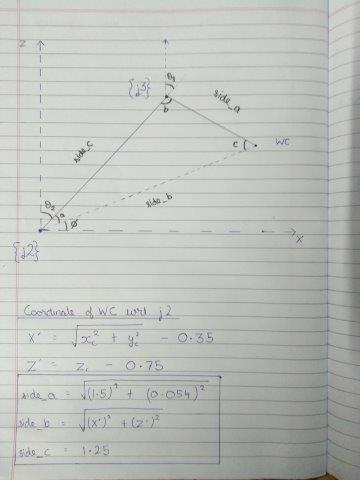 z
θ3
{j3}
side_a
b
side_c
c
WC
θ2
a
ø
side_b
x
{j2}
Coordinate of WC wrt j2
X' = √xc² + yc² - 0.35
Z' = zc - 0.75
side_a = √(1.5)² + (0.054)²
side_b = √(x')² + (z')²
side_c = 1.25